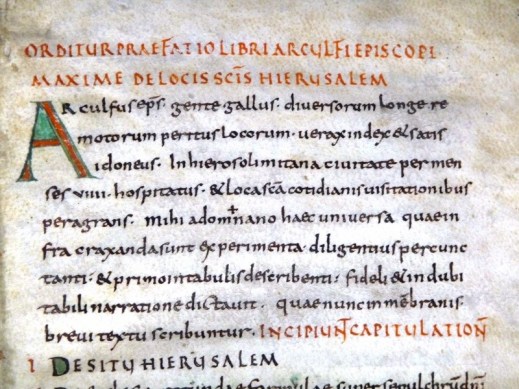 ORDITUR PRAEFATIO LIBRI ARCULFI EPISCOPI
MAXIME DE LOCIS SCIS HIERUSALEM
ARculfus eps. gente gallus. diversorum longe re
motorum peritus locorum. verax index & satis
idoneus. In hierosolimitana civitate per men
ses viiii. hospitatus. & loca sca cotidianis visitationibus
peragrans. mihi adomnano haec universa quae in
fra craxanda sunt experimenta. diligentius percunc
tanti. & primo in tabulis describenti. fideli & indubi
tabili narratione dictavit. quae nunc in mebranis
brevi textu scribuntur. INCIPIUNT CAPITULATION
I DE SITU HIERUSALEM